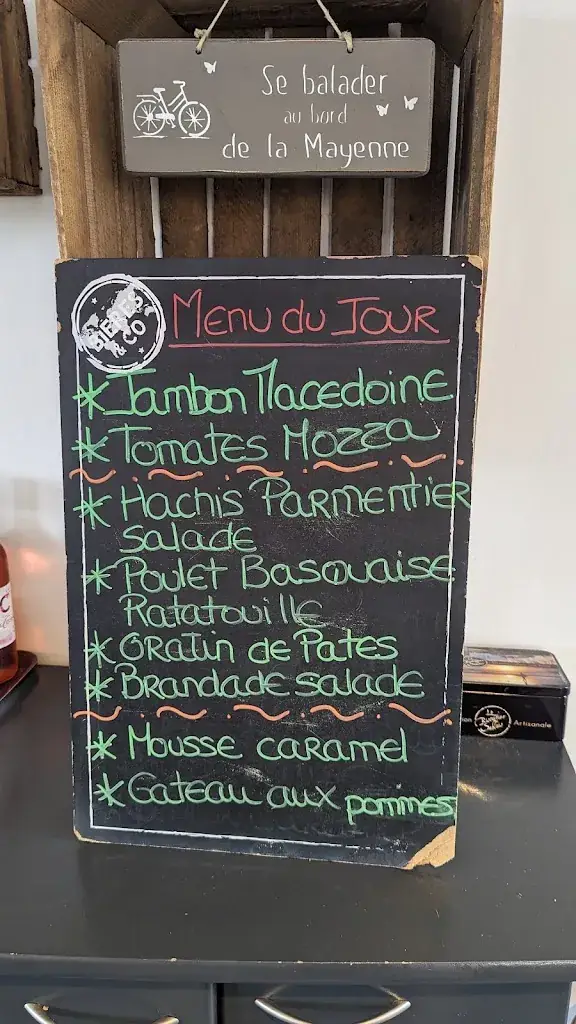 Se balader
au bord
de la Mayenne
BIÈRES
& CO
Menu du Jour
* Jambon Macedoine
* Tomates Mozza
* Hachis Parmentier
salade
* Poulet Basquaise
Ratatouille
* Gratin de Pates
* Brandade salade
* Mousse caramel
* Gateau aux pommes
Artisanale